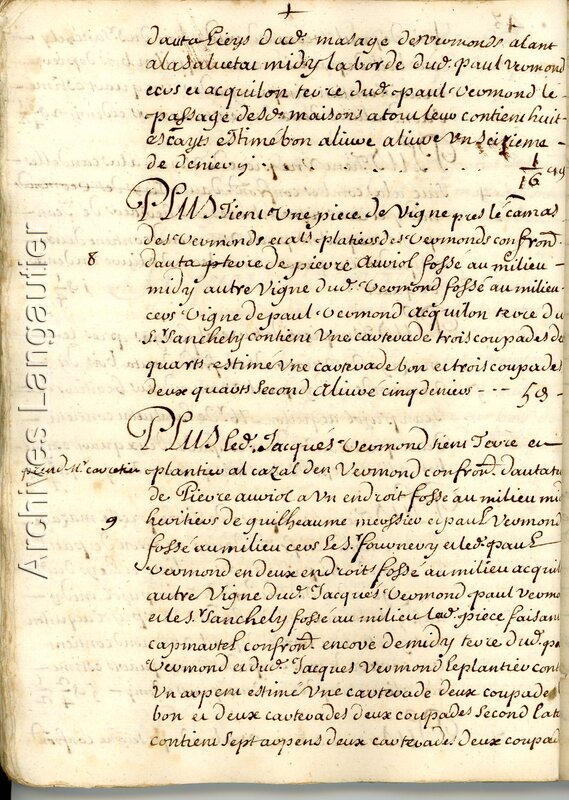 +
dauta Lieys dud. masage des vermonds alant
ala salvetat midy la borde dud. paul vermond
cers et acquilon terre dud. paul vermond le
passage desd. maisons a tout leur contient huit
escayts estimé bon alivre alivre un seizieme
de denier 1/16
PLUS tient une piece de vigne pres le camas
des vermonds et als platiers des vermonds confron.
8
dauta terre de pierre auriol fossé au milieu
midy autre vigne dud. vermond fossé au milieu
cers vigne de paul vermond acquilon terre du
Sr. Sanchely contient une carterade trois coupades deux
quarts estimé une carterade bon et trois coupades
deux quarts second alivré cinq deniers --- 5 d
PLUS led. Jacques vermond tient terre et
prend Mr. carretier
plantier al cazal den vermond confron. dauta te
de Pierre auriol a un endroit fossé au milieu mid
9
heritiers de guilheaume messier et paul vermond
fossé au milieu cers le Sr. fournery et led. paul
vermond en deux endroits fossé au milieu acquil
autre vigne dud. Jacques vermond paul vermo
et le Sr. Sanchely fossé au milieu lad. piece faisan
capmartel confron. encore de midy terre dud. pa
vermond et dud. Jacques vermond le plantier cont
un arpent estimé une carterade deux coupades
bon et deux carterades deux coupades second la te
contient sept arpens deux carterades deux coupad
Archives Langautier